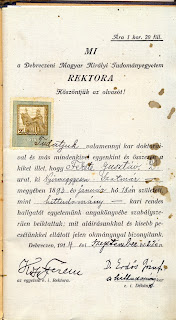 Ára 1 kor. 20 fill.
MI
a Debreczeni Magyar Királyi Tudományegyetem
REKTORA
Köszöntjük az olvasót!
Tudatjuk valamennyi kar doktorai-
val és más mindenkivel egyenkint és összesen
a kiket illet, hogy Fekete Gusztáv
urat, ki Szatmár
megyében 189 január hó 15.én született
mint — kari rendes
hallgatót egyetemünk anyakönyvébe szabálysze-
rűen beiktattuk; mit aláirásunkkal és kisebb pe-
csétünkkel ellátott jelen okmánynyal bizonyitunk.
Debreczen, 191 szeptember
Kiss Ferenc
D. Erdős József
az egyetem e. i. Rektora.
a
e. i. Dékánja.